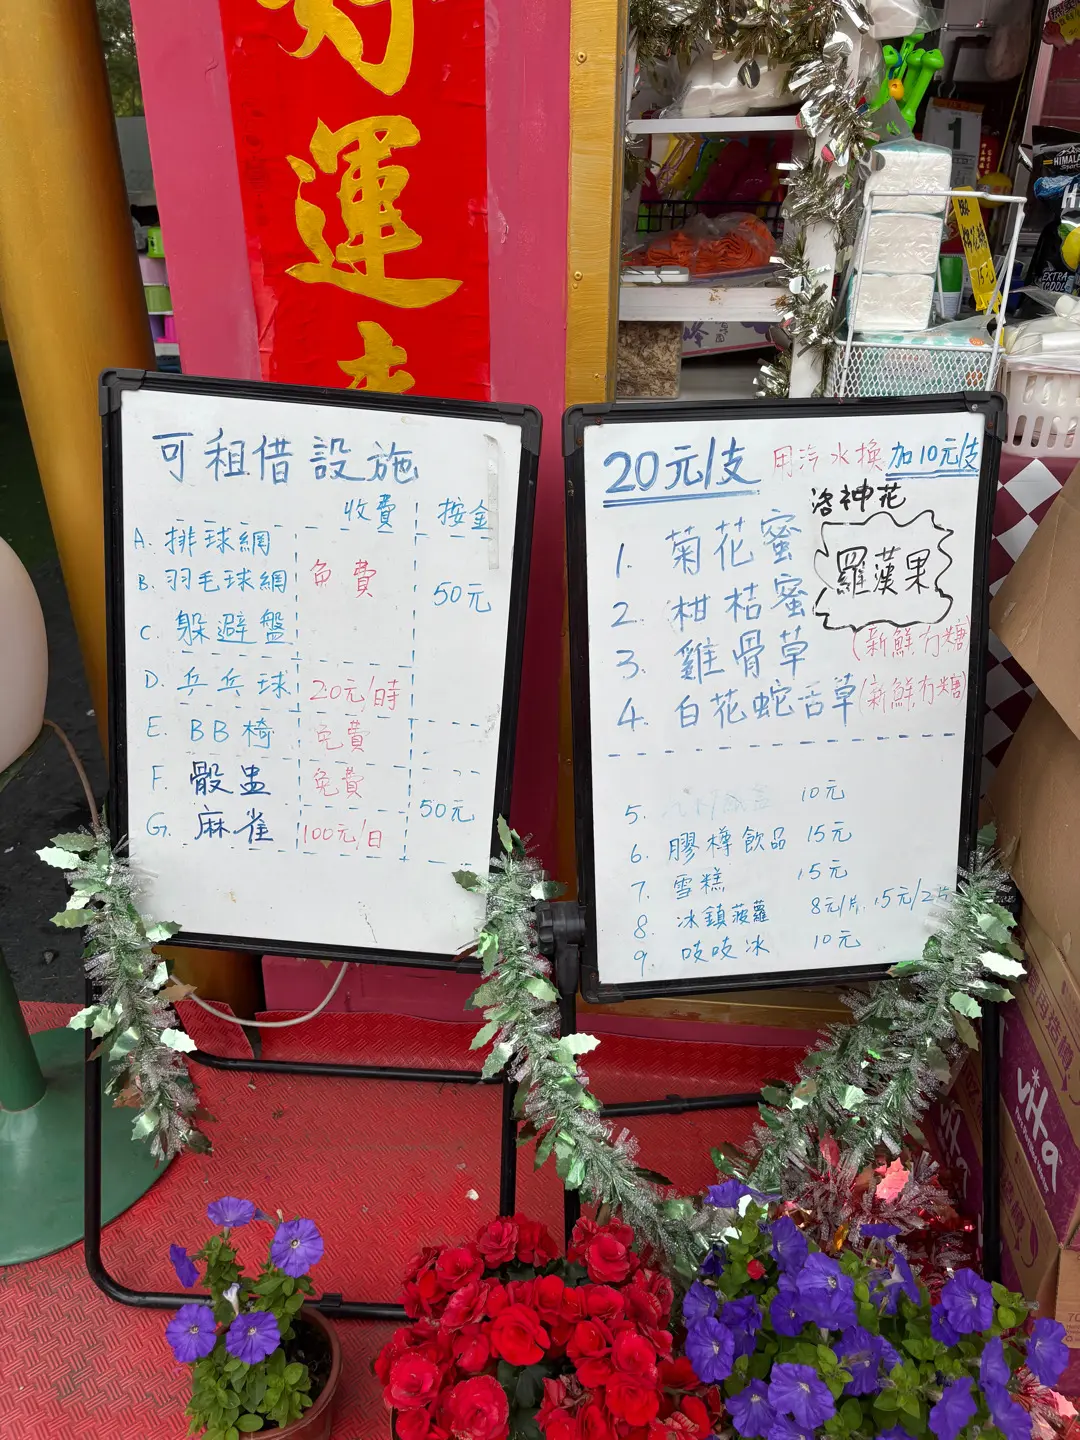 好
運
可租借設施
收費 按金
A. 排球網
B. 羽毛球網 免費 50元
C. 躲避盤
D. 乒乓球 20元/時
E. BB椅 免費
F. 骰盅 免費 50元
G. 麻雀 100元/日
20元/支 用汽水換 加10元/支
洛神花
羅漢果
1. 菊花蜜
2. 柑桔蜜
3. 雞骨草 (新鮮冇糖)
4. 白花蛇舌草 (新鮮冇糖)
5. 10元
6. 膠樽飲品 15元
7. 雪糕 15元
8. 冰鎮菠蘿 8元/片, 15元/2片
9. 吱吱冰 10元
1
HIMALA
EXTRA
COOL
vita